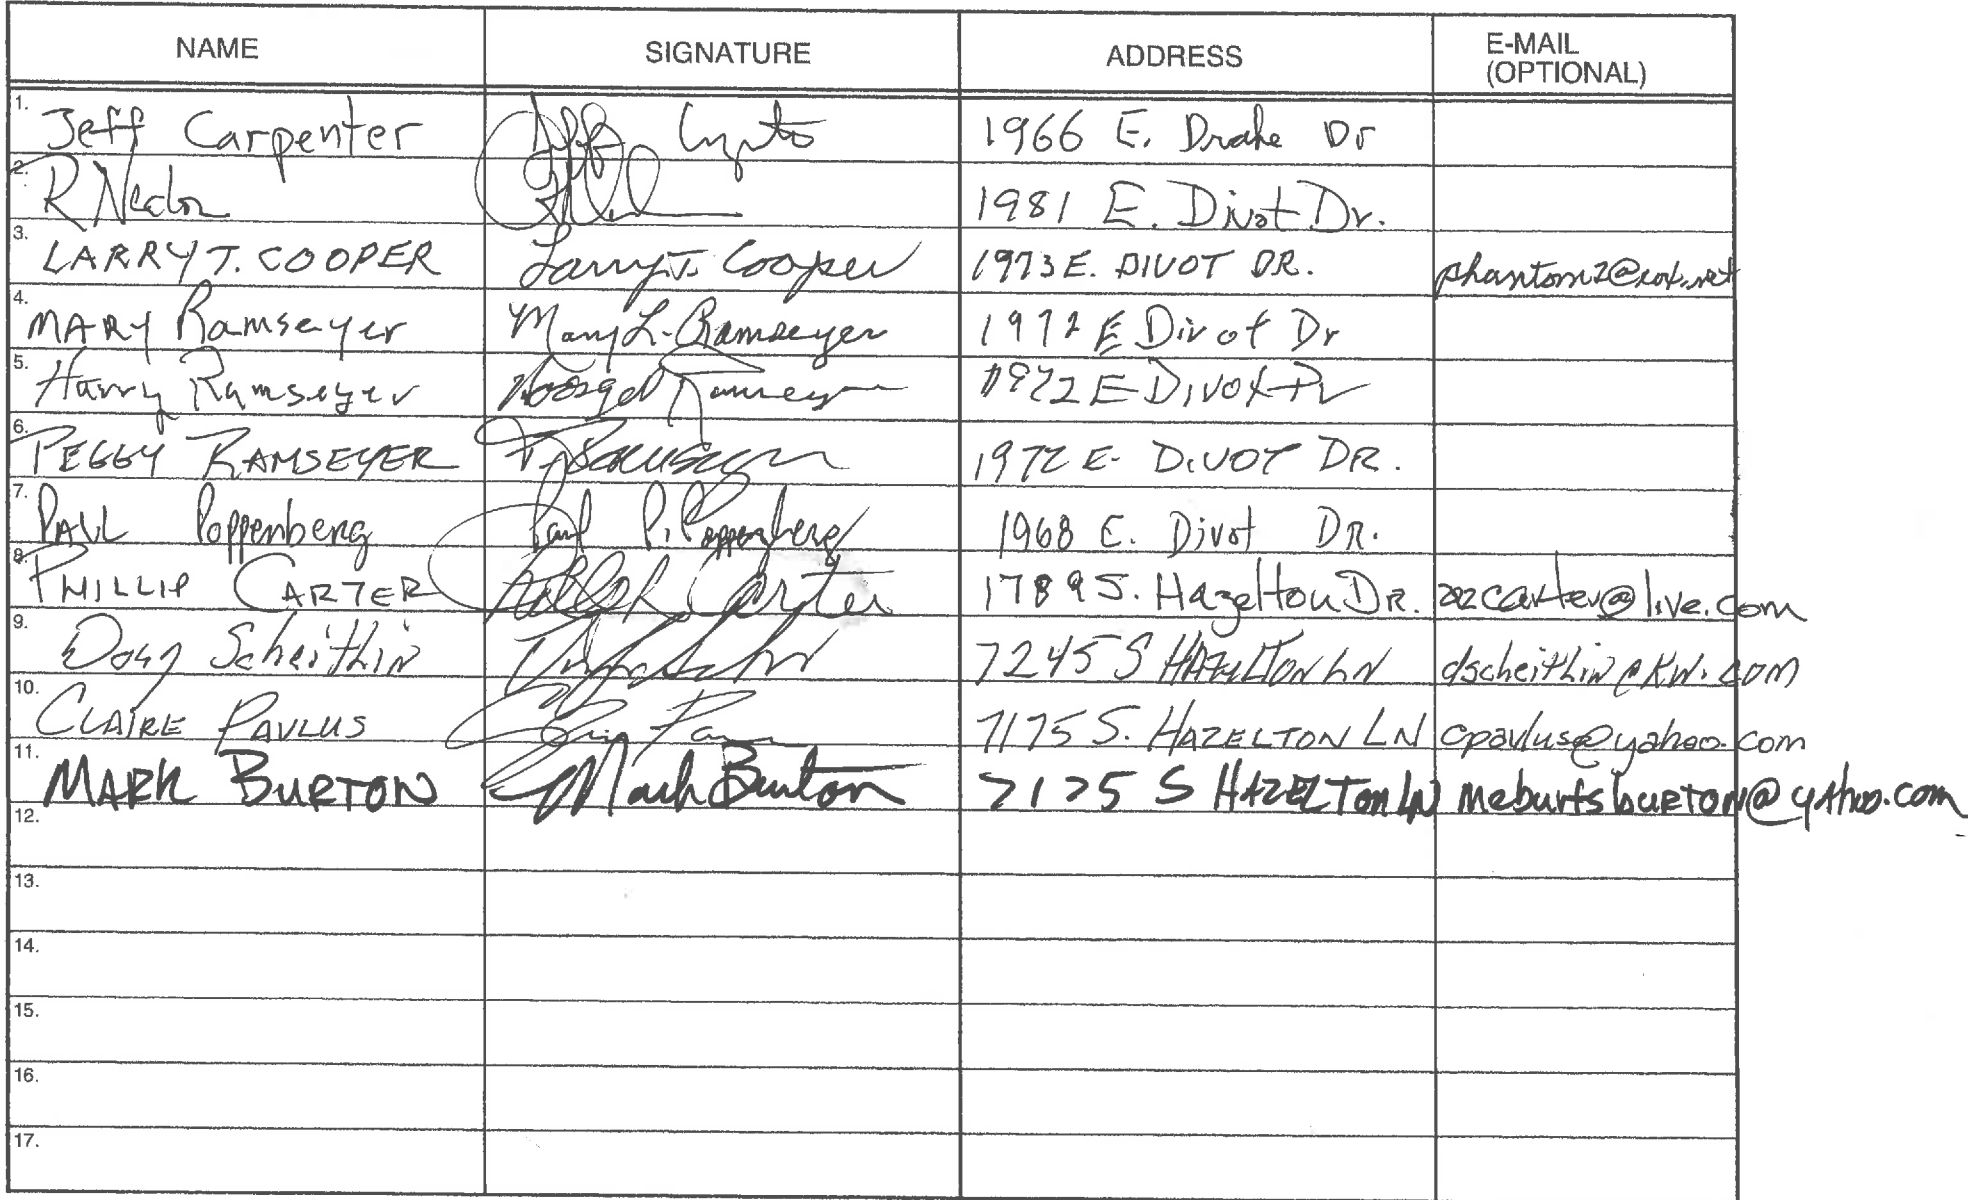 NAME SIGNATURE ADDRESS E-MAIL (OPTIONAL)
1. Jeff Carpenter 1966 E. Drake Dr
2. R 1981 E. Divot Dr.
3. LARRY T. COOPER Larry T. Cooper 1973 E. DIVOT DR.
4. MARY Ramseyer Mary L. Ramseyer 1972 E Divot Dr
5. Harry Ramseyer Ramseyer 1972 E DIVOT Dr
6. PEGGY RAMSEYER P. Ramseyer 1972 E. DIVOT DR.
7. PAUL Poppenberg Paul P. Poppenberg 1968 E. Divot DR.
8. PHILLIP CARTER Phillip Carter 1789 S. Hazelton DR. azcarter@live.com
9. Doug Scheithlin 7245 S HAZELTON LN dscheithlin@KW.com
10. CLAIRE PAVLUS 7175 S. HAZELTON LN cpavlus@yahoo.com
11. MARK BURTON Mark Burton 7125 S HAZELTON LN meburtsburton@yahoo.com
12.
13.
14.
15.
16.
17.